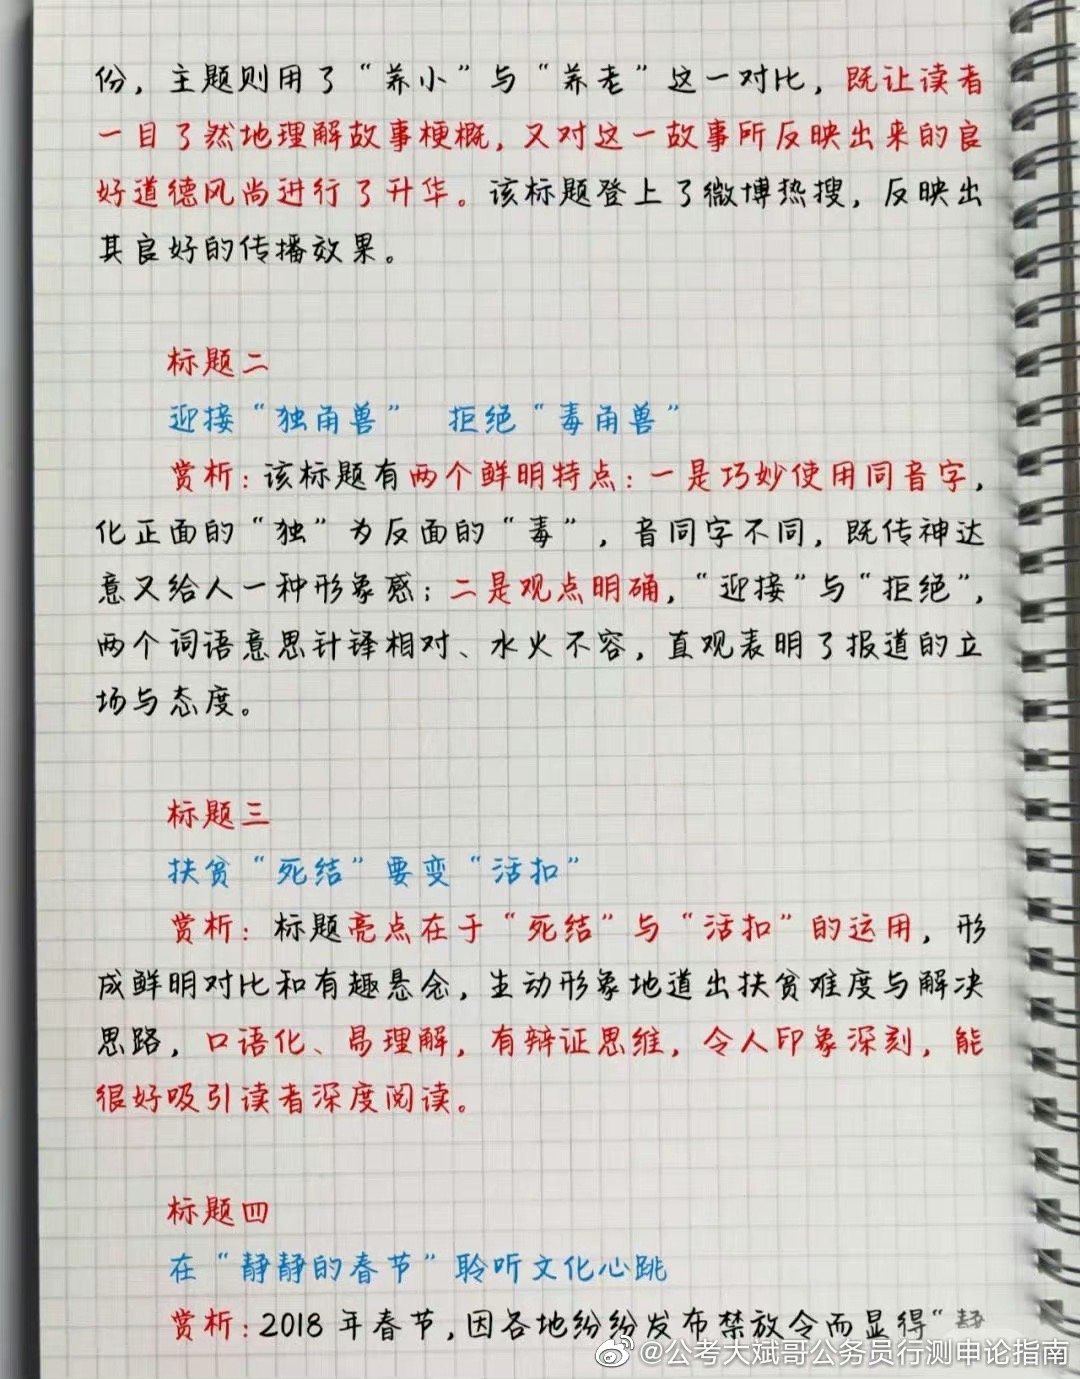 份，主题则用了“养小”与“养老”这一对比，既让读者
一目了然地理解故事梗概，又对这一故事所反映出来的良
好道德风尚进行了升华。该标题登上了微博热搜，反映出
其良好的传播效果。
标题二
迎接“独角兽” 拒绝“毒角兽”
赏析：该标题有两个鲜明特点：一是巧妙使用同音字，
化正面的“独”为反面的“毒”，音同字不同，既传神达
意又给人一种形象感；二是观点明确，“迎接”与“拒绝”，
两个词语意思针锋相对、水火不容，直观表明了报道的立
场与态度。
标题三
扶贫“死结”要变“活扣”
赏析：标题亮点在于“死结”与“活扣”的运用，形
成鲜明对比和有趣悬念，生动形象地道出扶贫难度与解决
思路，口语化、易理解，有辩证思维，令人印象深刻，能
很好吸引读者深度阅读。
标题四
在“静静的春节”聆听文化心跳
赏析：2018年春节，因各地纷纷发布禁放令而显得“静
@公考大斌哥公务员行测申论指南